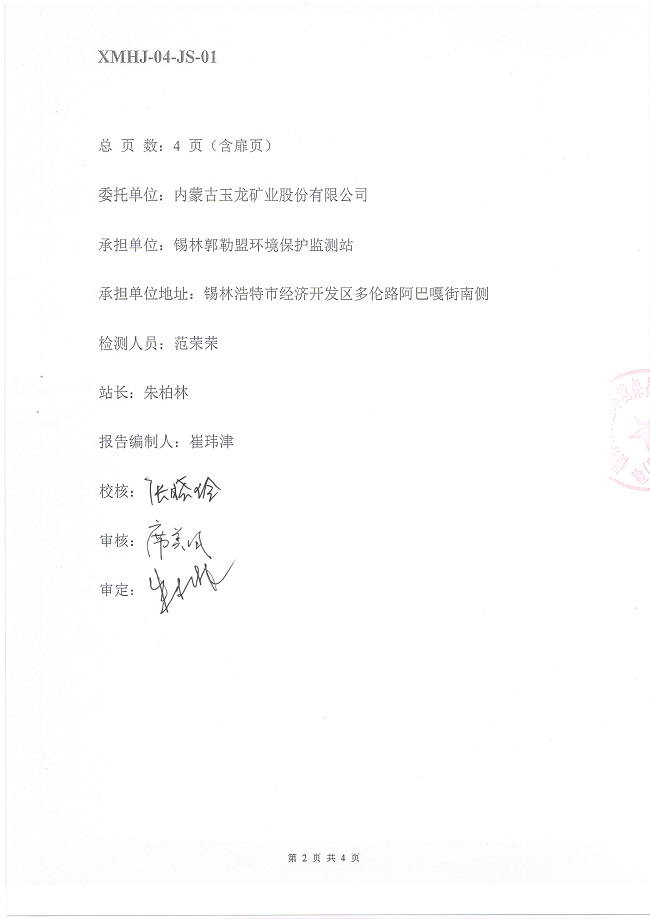 XMHJ-04-JS-01
总 页 数：4 页（含扉页）
委托单位：内蒙古玉龙矿业股份有限公司
承担单位：锡林郭勒盟环境保护监测站
承担单位地址：锡林浩特市经济开发区多伦路阿巴嘎街南侧
检测人员：范荣荣
站长：朱柏林
报告编制人：崔玮津
校核：张晓玲
审核：席美凤
审定：
第 2 页 共 4 页